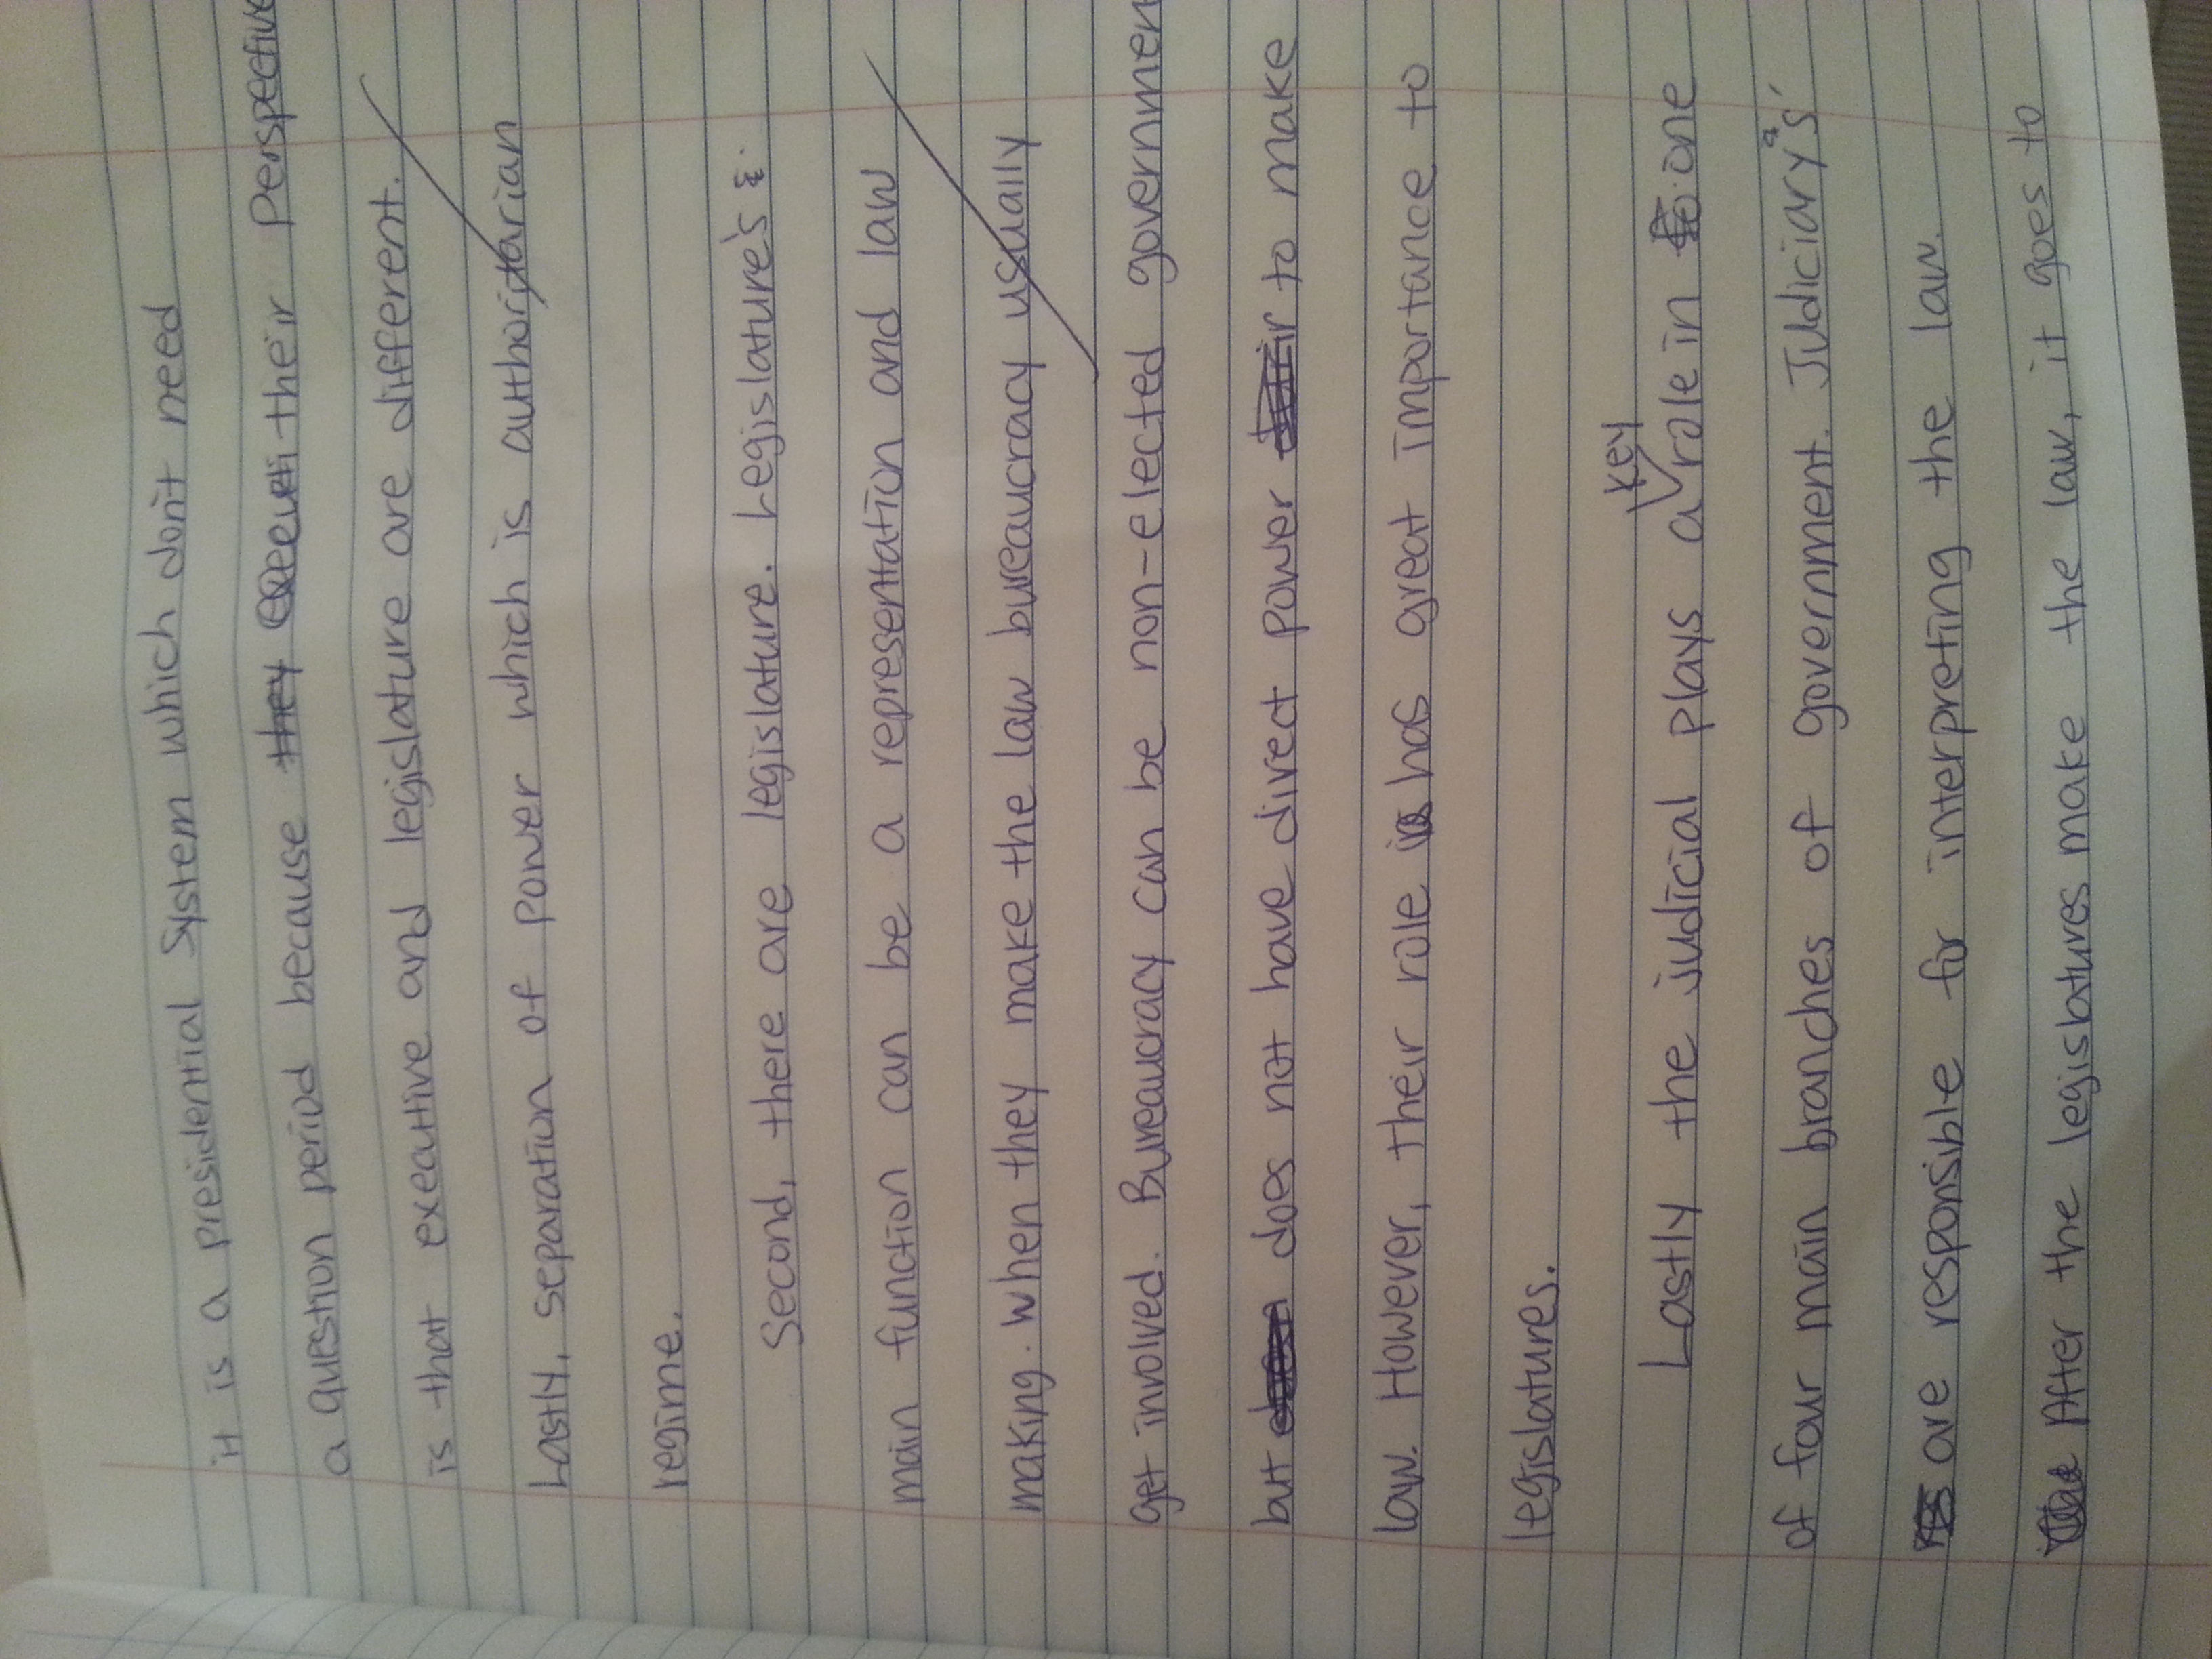 it is a presidential system which don't need
a question period because they their perspective
is that executive and legislature are different.
Lastly, separation of power which is authoritarian
regime.
Second, there are legislature. Legislature's
main function can be a representation and law
making. When they make the law bureaucracy usually
get involved. Bureaucracy can be non-elected governmen
but does not have direct power to make
law. However, their role has great importance to
legislatures.
Lastly the judicial plays a key role in one
of four main branches of government. Judiciary's
are responsible for interpreting the law.
After the legislatures make the law, it goes to